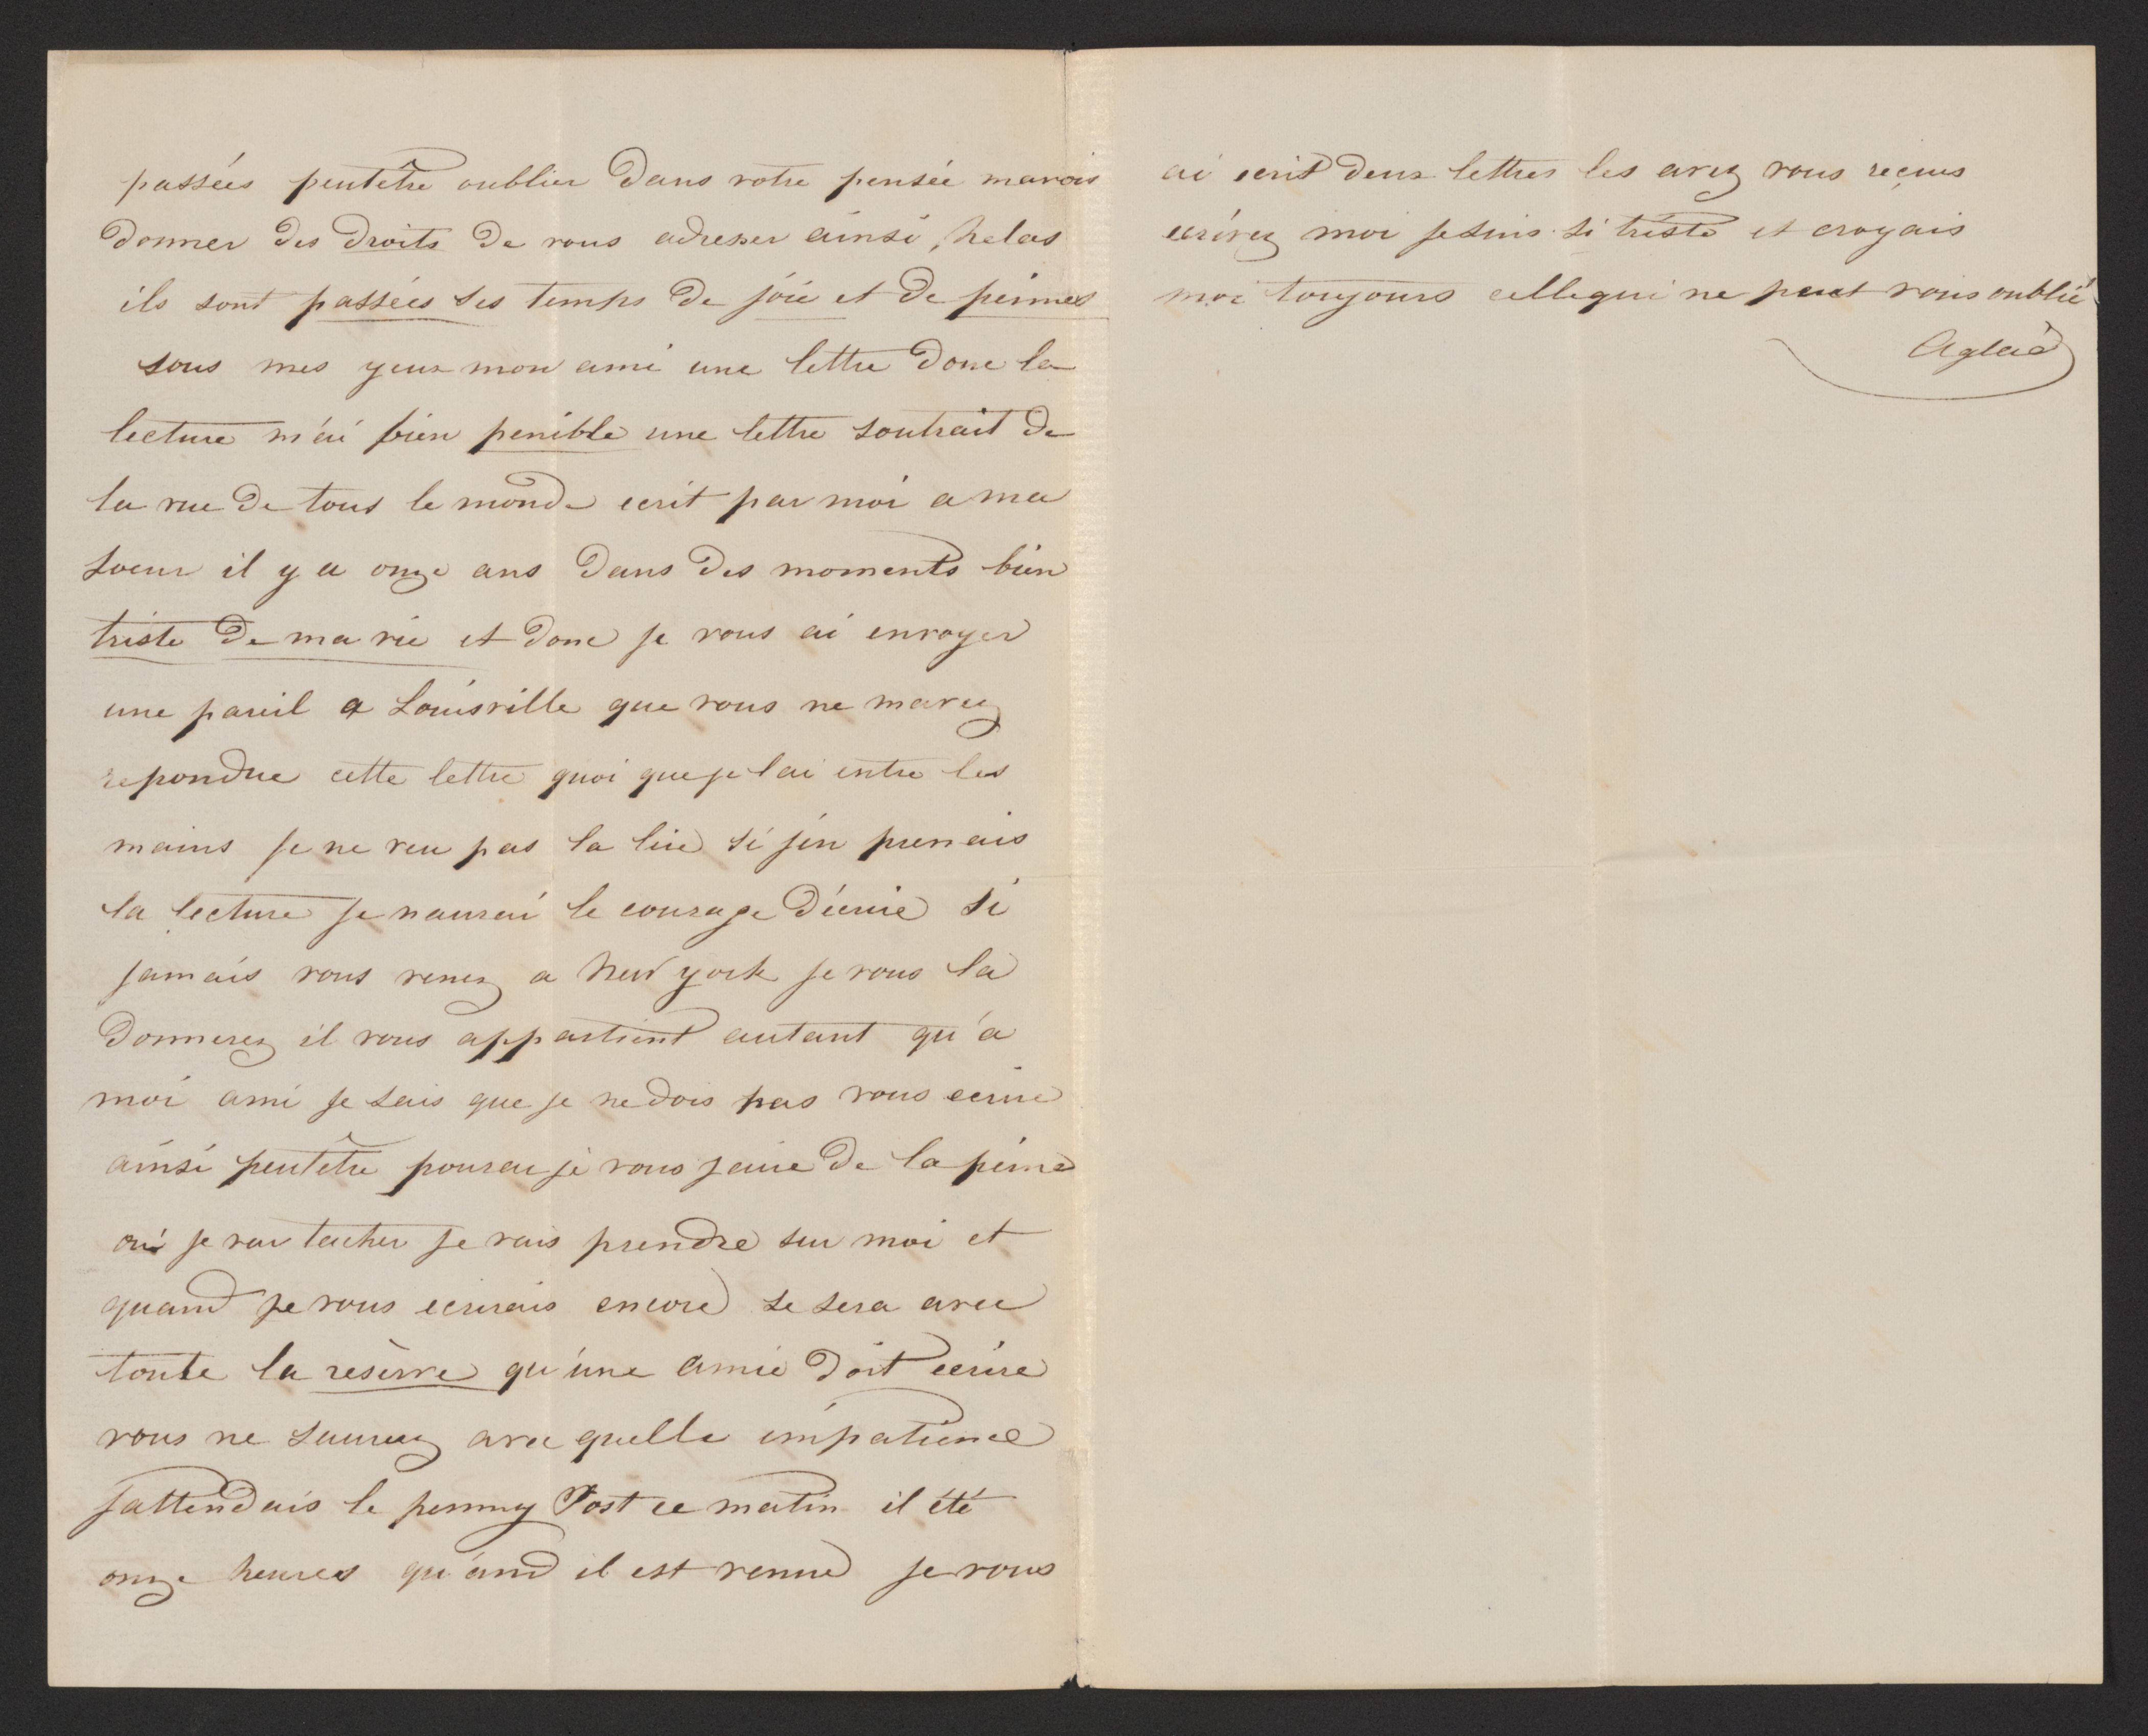 passées peutêtre oublier dans votre pensée mavois
donner des droits de vous adresser ainsi, helas
ils sont passées ses temps de joie et de peinnes
sous mes yeux mon ami une lettre donc la
lecture m'ai bien penible une lettre soutrait de
la vue de tous le monde ecrit par moi a ma
soeur il y a onze ans dans des moments bien
triste de ma vie et donc je vous ai envoyer
une pareil a Louisville que vous ne mavez
repondue cette lettre quoi que je lai entre les
mains je ne veu pas la lire si j'en prenais
la lecture je naurai le courage d'écrire si
jamais vous venez a New york je vous la
donnerez il vous appartient autant qu'a
moi ami je sais que je ne dois pas vous ecrire
ainsi peutêtre pourai je vous faire de la peine
oui je vai tacher je vais prendre sur moi et
quand je vous ecrirais encore se sera avec
toute la reserve qu'une amie doit ecrire
vous ne saurez avec quelle impatience
jattendais le penny Post ce matin il été
onze heures qu'and il est venue je vous
ai ecrit deux lettres les avez vous reçues
ecrivez moi je suis si triste et croyais
moi toujours celle qui ne peut vous oublié
Aglaé